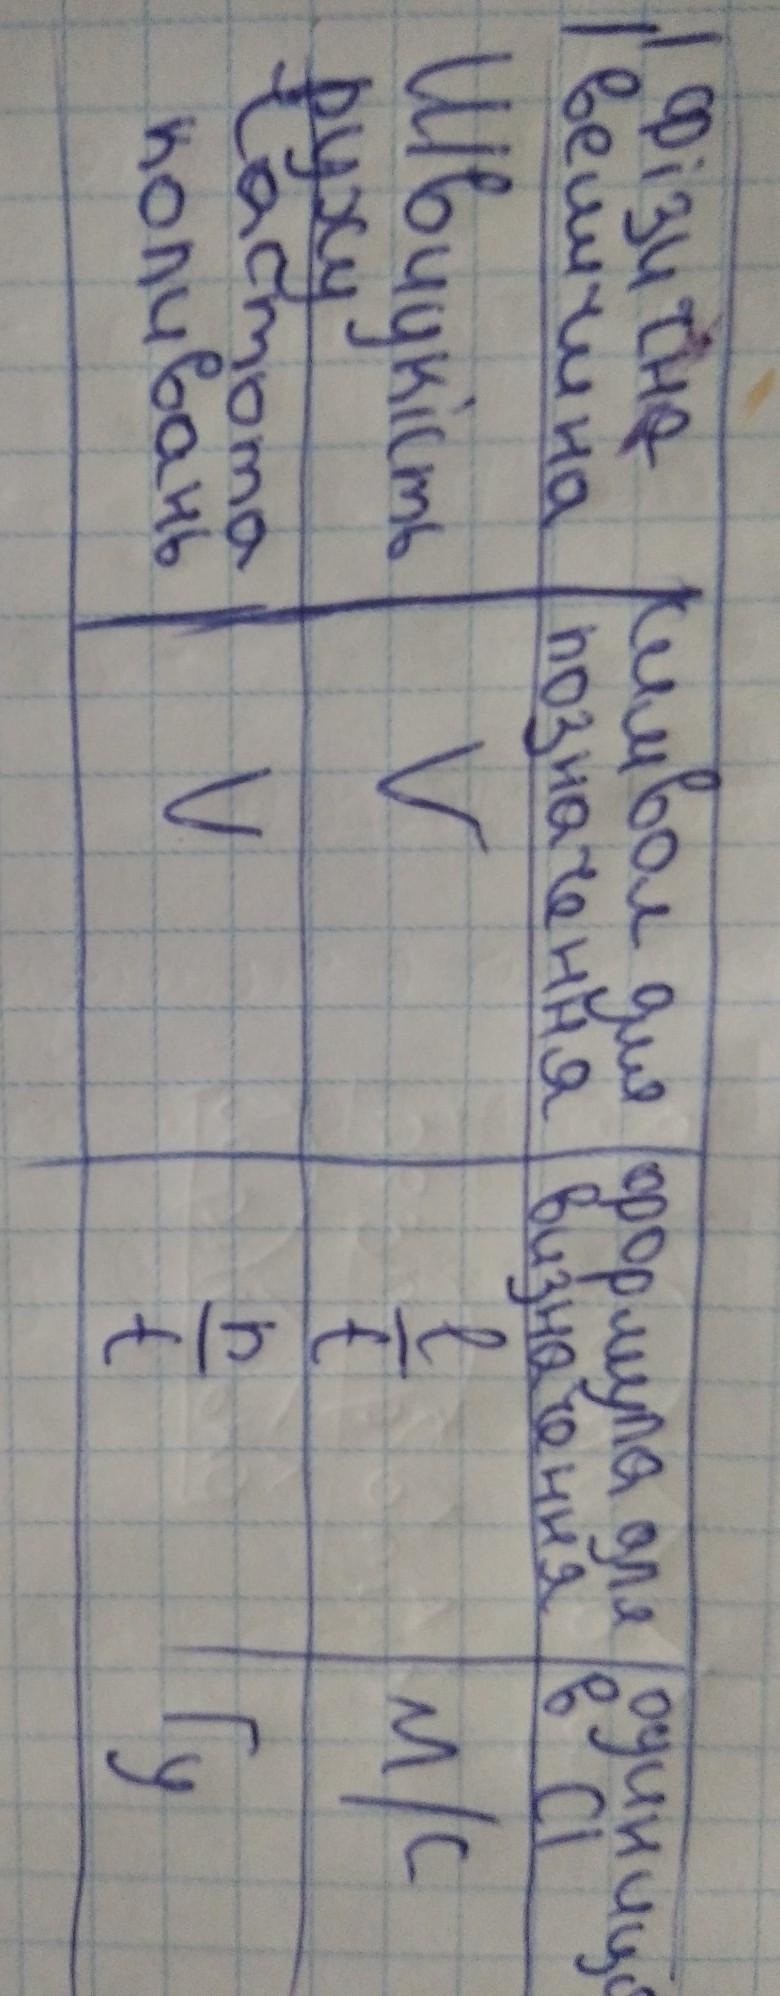 Фізична
величина
Символ для
позначення
формула для
визначення
одиниця
в СІ
Швидкість
руху
V
l
t
м/с
частота
коливань
V
n
t
Гц